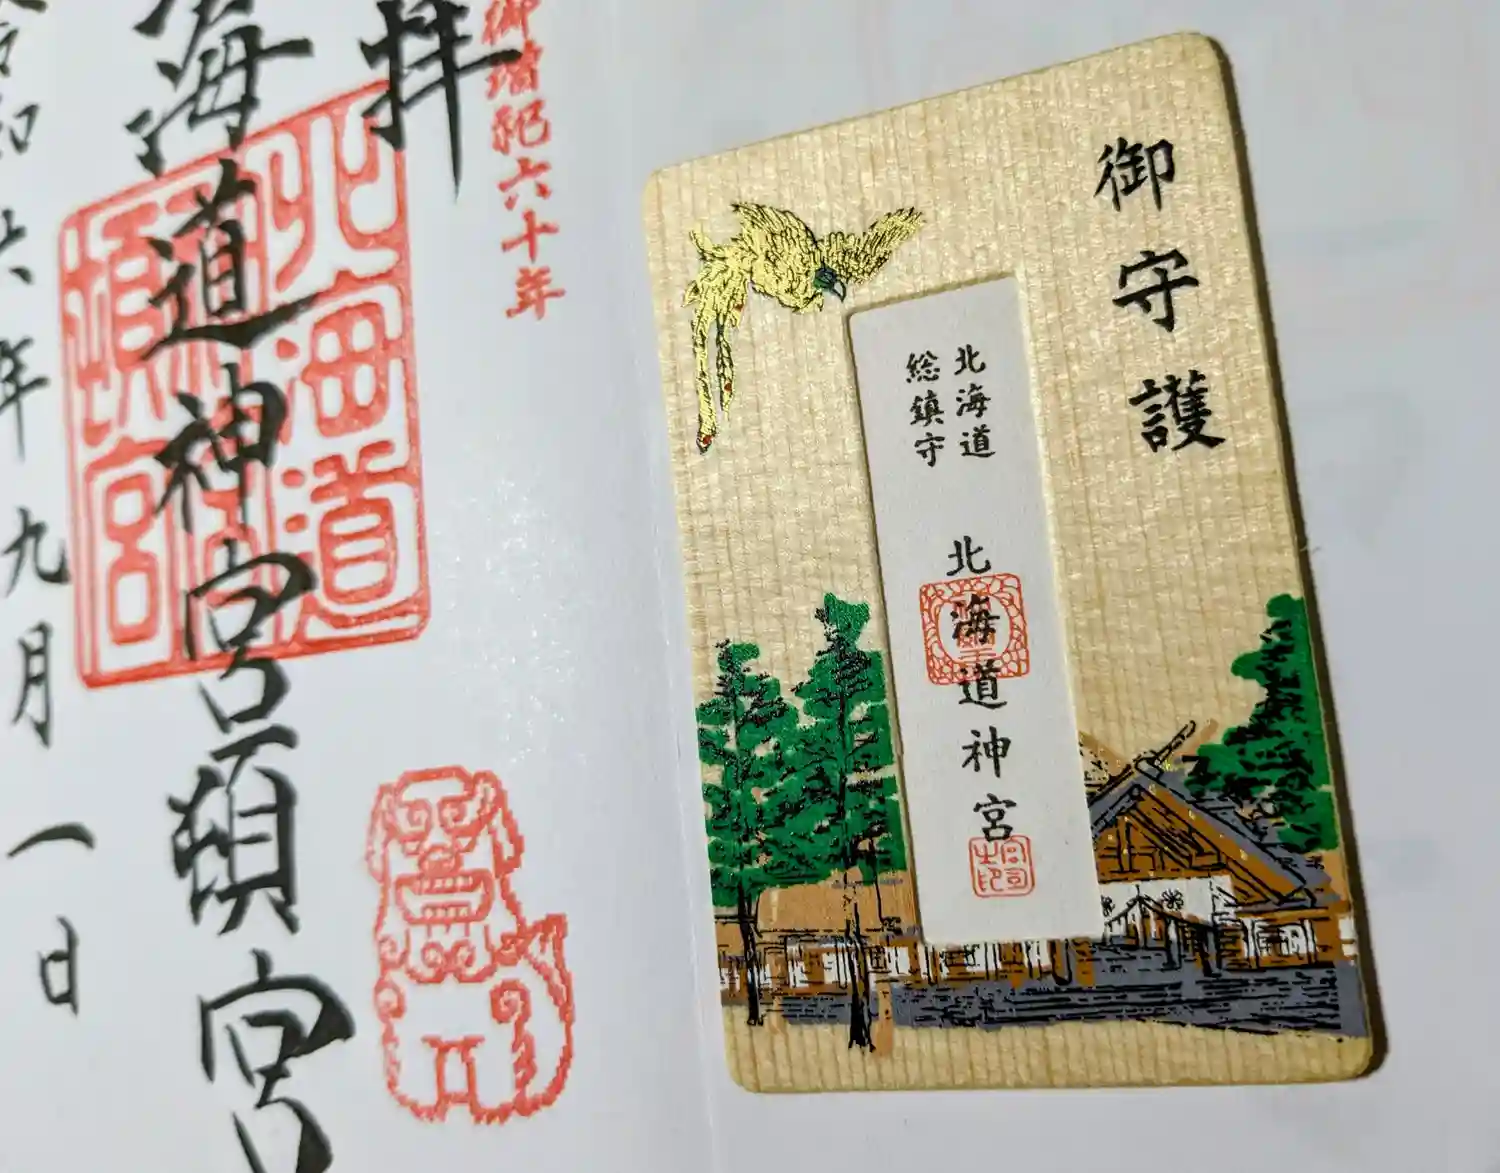 御守護
北海道
総鎮守
北海道神宮
宮司之印
御増祀六十年
拝
海道神宮頓宮
北海道
頓宮
令和六年九月一日